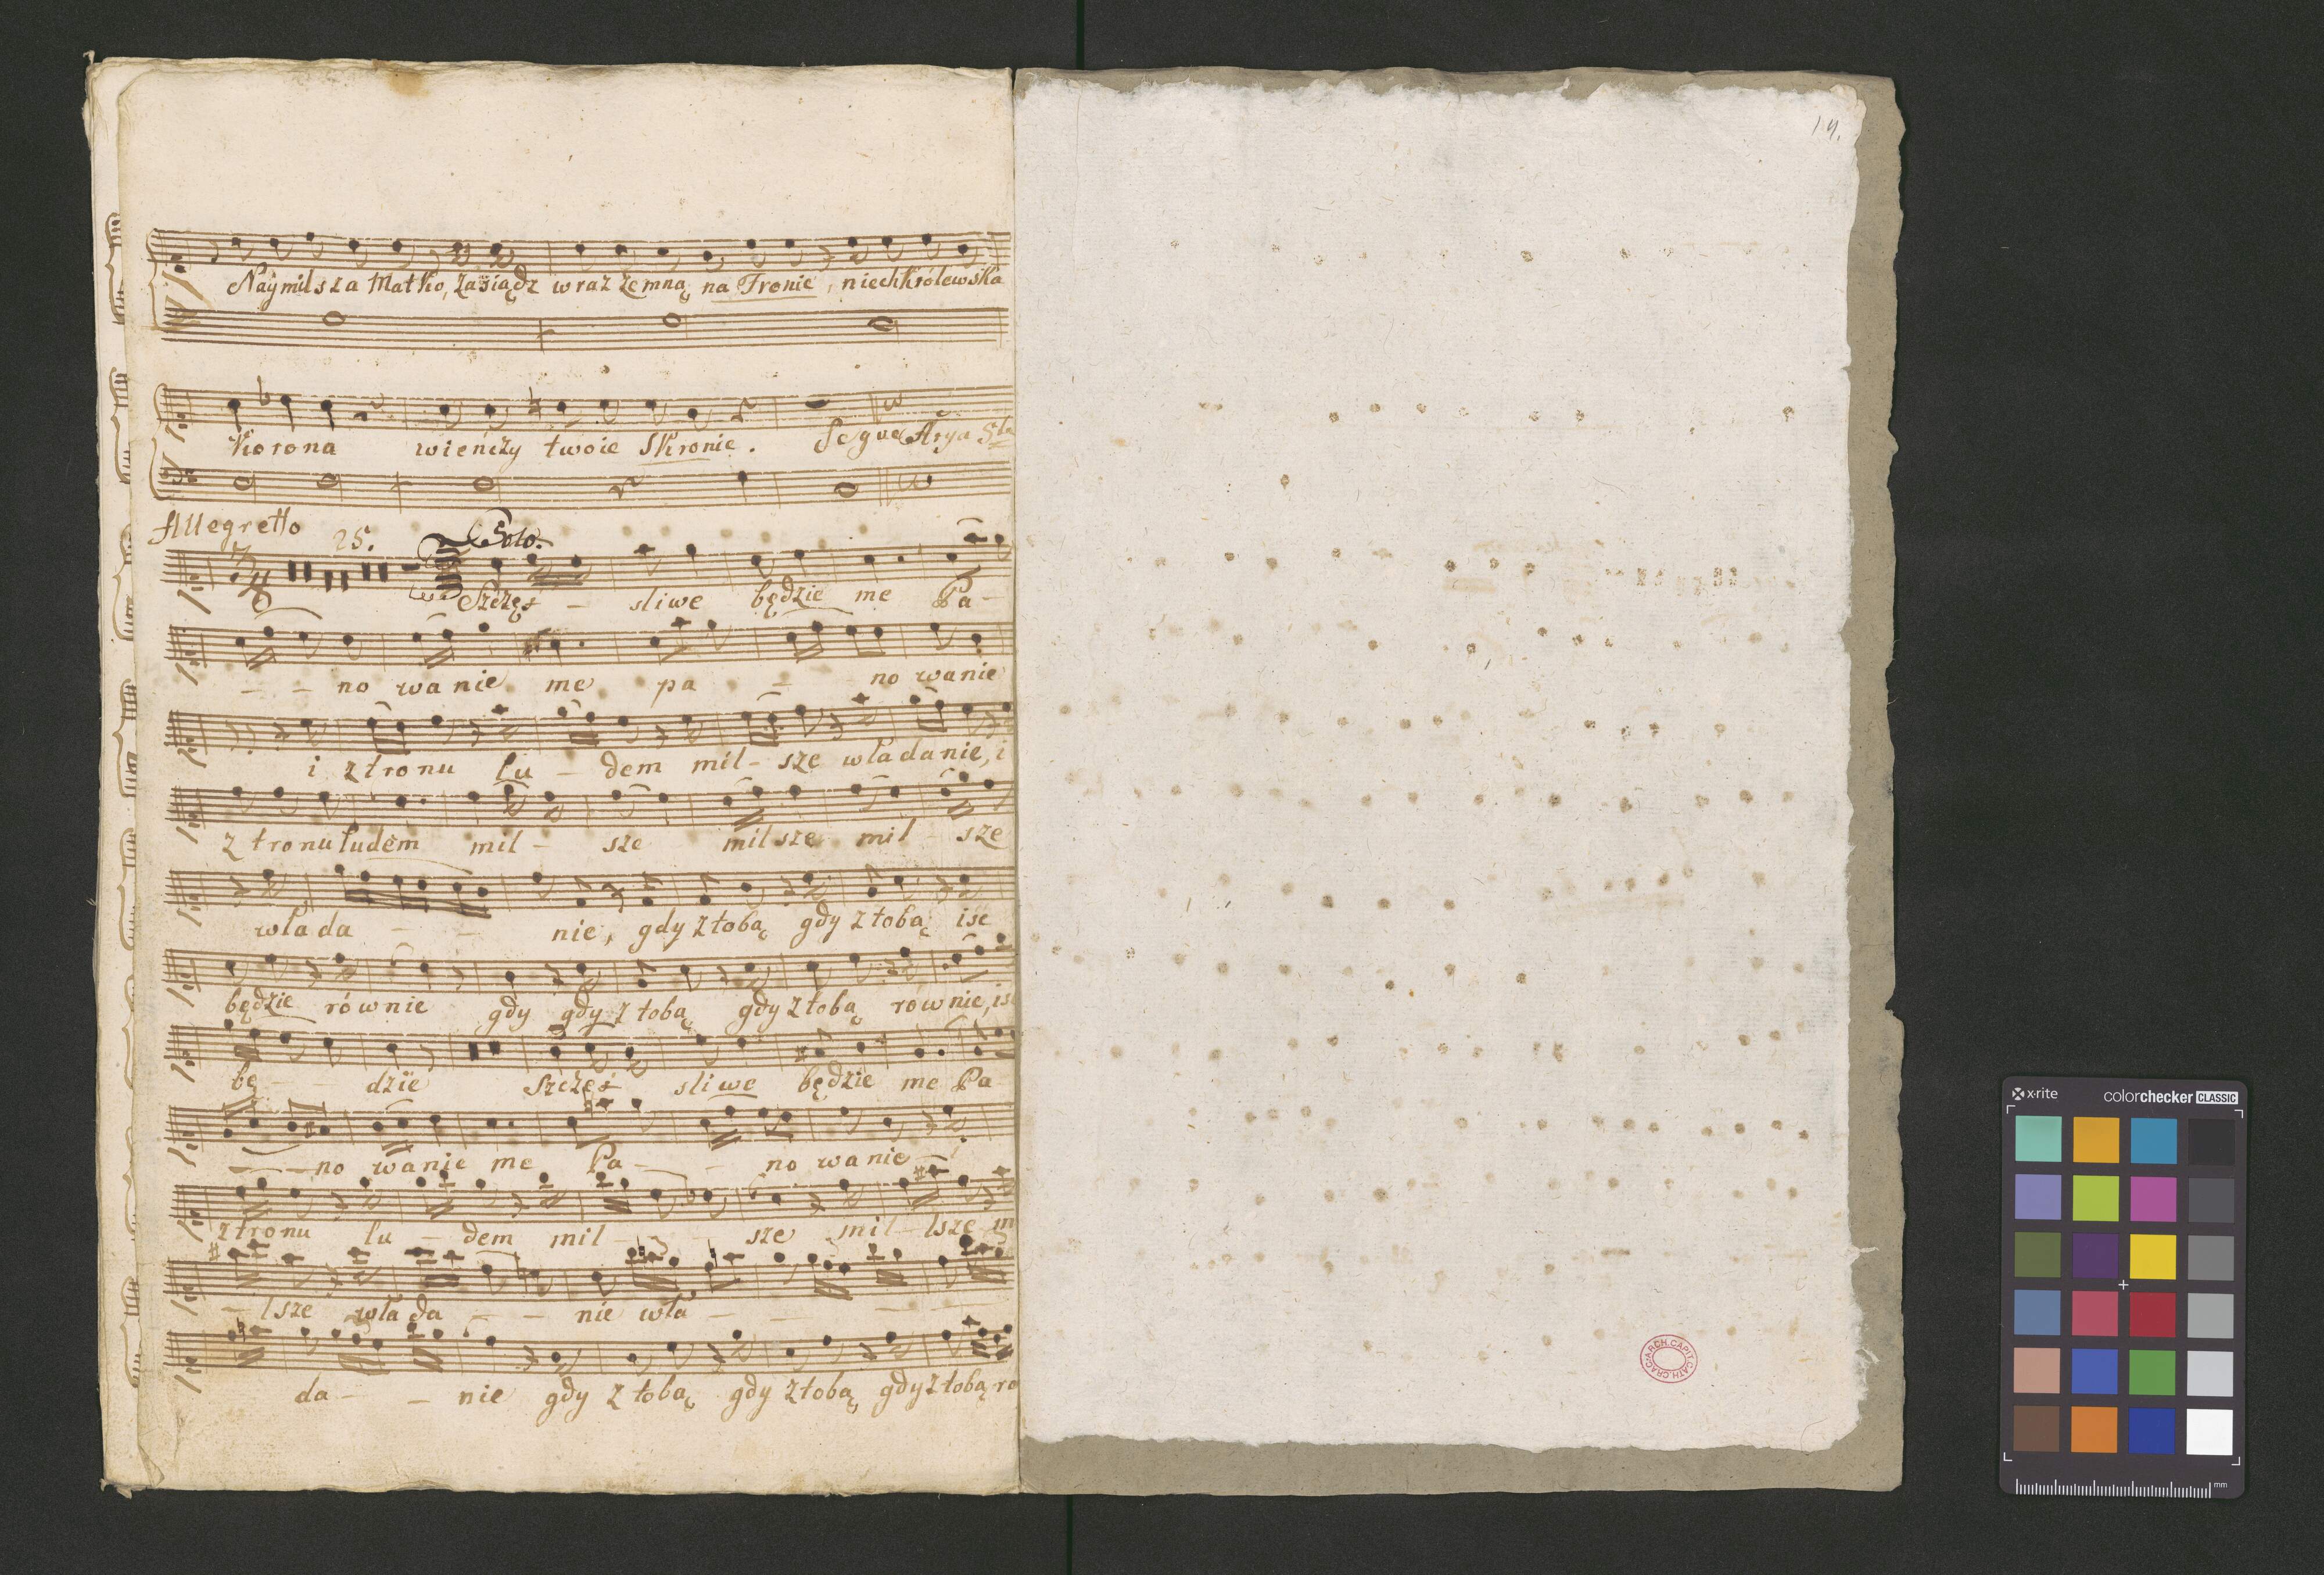 Naÿmilsza Matko, zasiądz wraz zemną na Tronie, niech królewska
Korona wieńczy twoie skronie. Segue Arya
Allegretto 25. Solo.
Szczęs - sliwe będzie me Pa -
- - no wanie me pa - no wanie
i z tronu lu - dem mil - sze władanie, i
z tronu ludem mil - sze milsze mil - sze
wła da - - nie, gdy z tobą gdy z tobą ise
będzie równie gdy gdy z tobą gdy z tobą równie, is
bę - - dzie Szczęs sliwe będzie me Pa
- - no wanie me Pa - - no wanie - i
z tronu lu - dem mil - sze mil - lsze m
- lsze wła da - - nie wła - -
da - - nie gdy z tobą gdy z tobą gdy z tobą ro
19.
ARCH. CAPIT. CATH. CRAC.
x-rite
colorchecker CLASSIC
mm